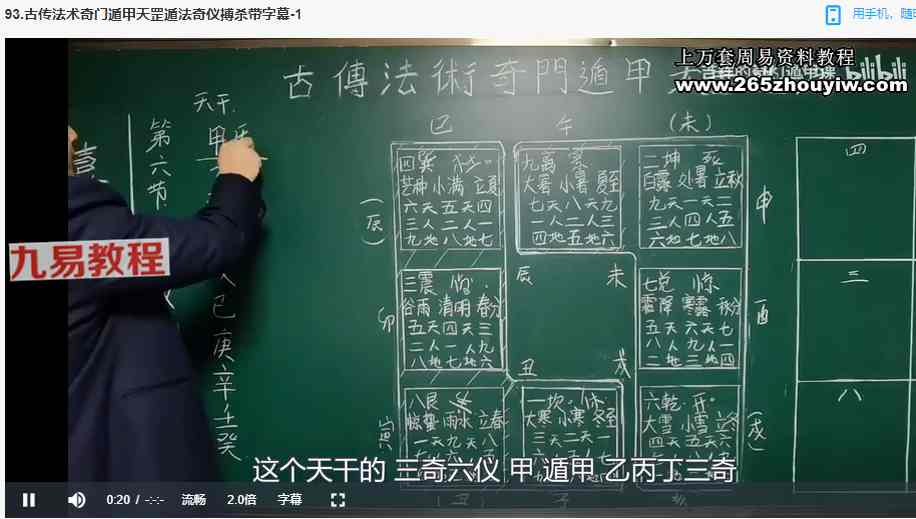 93.古传法术奇门遁甲天罡遁法奇仪搏杀带字幕-1
用手机，随时
上万套周易资料教程
bilibili
www.265zhouyiw.com
古傳法術奇門遁甲
天干
甲
己
庚
辛
壬
癸
第六节
九易教程
巳
午
(未)
(辰)
申
卯
酉
寅
(戌)
(丑)
子
亥
四巽 杜
芒种 小满 立夏
六天五天四
三人二人一
九地八地七
九离 景
大暑 小暑 夏至
七天八天九
一人二人三
四地五地六
二坤 死
白露 处暑 立秋
九天一天二
三人四人五
六地七地八
三震 伤
谷雨 清明 春分
五天四天三
二人一人九
八地七地六
七兑 惊
霜降 寒露 秋分
五天六天七
八人九人一
二地三地四
八艮 生
惊蛰 雨水 立春
一天九天八
一坎 休
大寒 小寒 冬至
三天二天一
六乾 开
大雪 小雪 立冬
四天五天六
辰
未
丑
戌
四
三
八
这个天干的 三奇六仪 甲 遁甲 乙丙丁三奇
0:20 / -:-:-
流畅
2.0倍
字幕